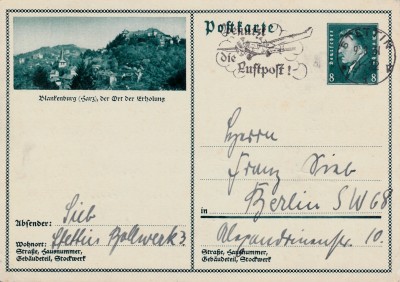 Postkarte
Benutzt
die
Luftpost!
Deutsches Reich
8 8
Blankenburg (Harz), der Ort der Erholung
Herrn
Franz Sieb
Berlin SW 68
in
Alexandrinenstr. 10.
Straße, Hausnummer,
Gebäudeteil, Stockwerk
Absender: Sieb
Wohnort: Stettin Bollwerk 3.
Straße, Hausnummer,
Gebäudeteil, Stockwerk